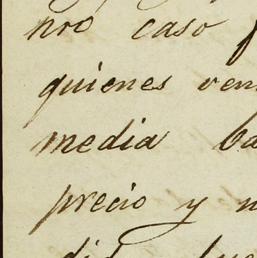 nro caso
quienes ven
media ba
precio y n